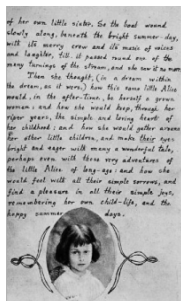 of her own little sister. So the boat wound
slowly along, beneath the bright summer-day,
with its merry crew and its music of voices
and laughter, till it passed round one of the
many turnings of the stream, and she saw it no more.
Then she thought, (in a dream within
the dream, as it were,) how this same little Alice
would, in the after-time, be herself a grown
woman: and how she would keep, through her
riper years, the simple and loving heart of
her childhood: and how she would gather around
her other little children, and make their eyes
bright and eager with many a wonderful tale,
perhaps even with these very adventures of
the little Alice of long-ago: and how she
would feel with all their simple sorrows, and
find a pleasure in all their simple joys,
remembering her own child-life, and the
happy summer days.